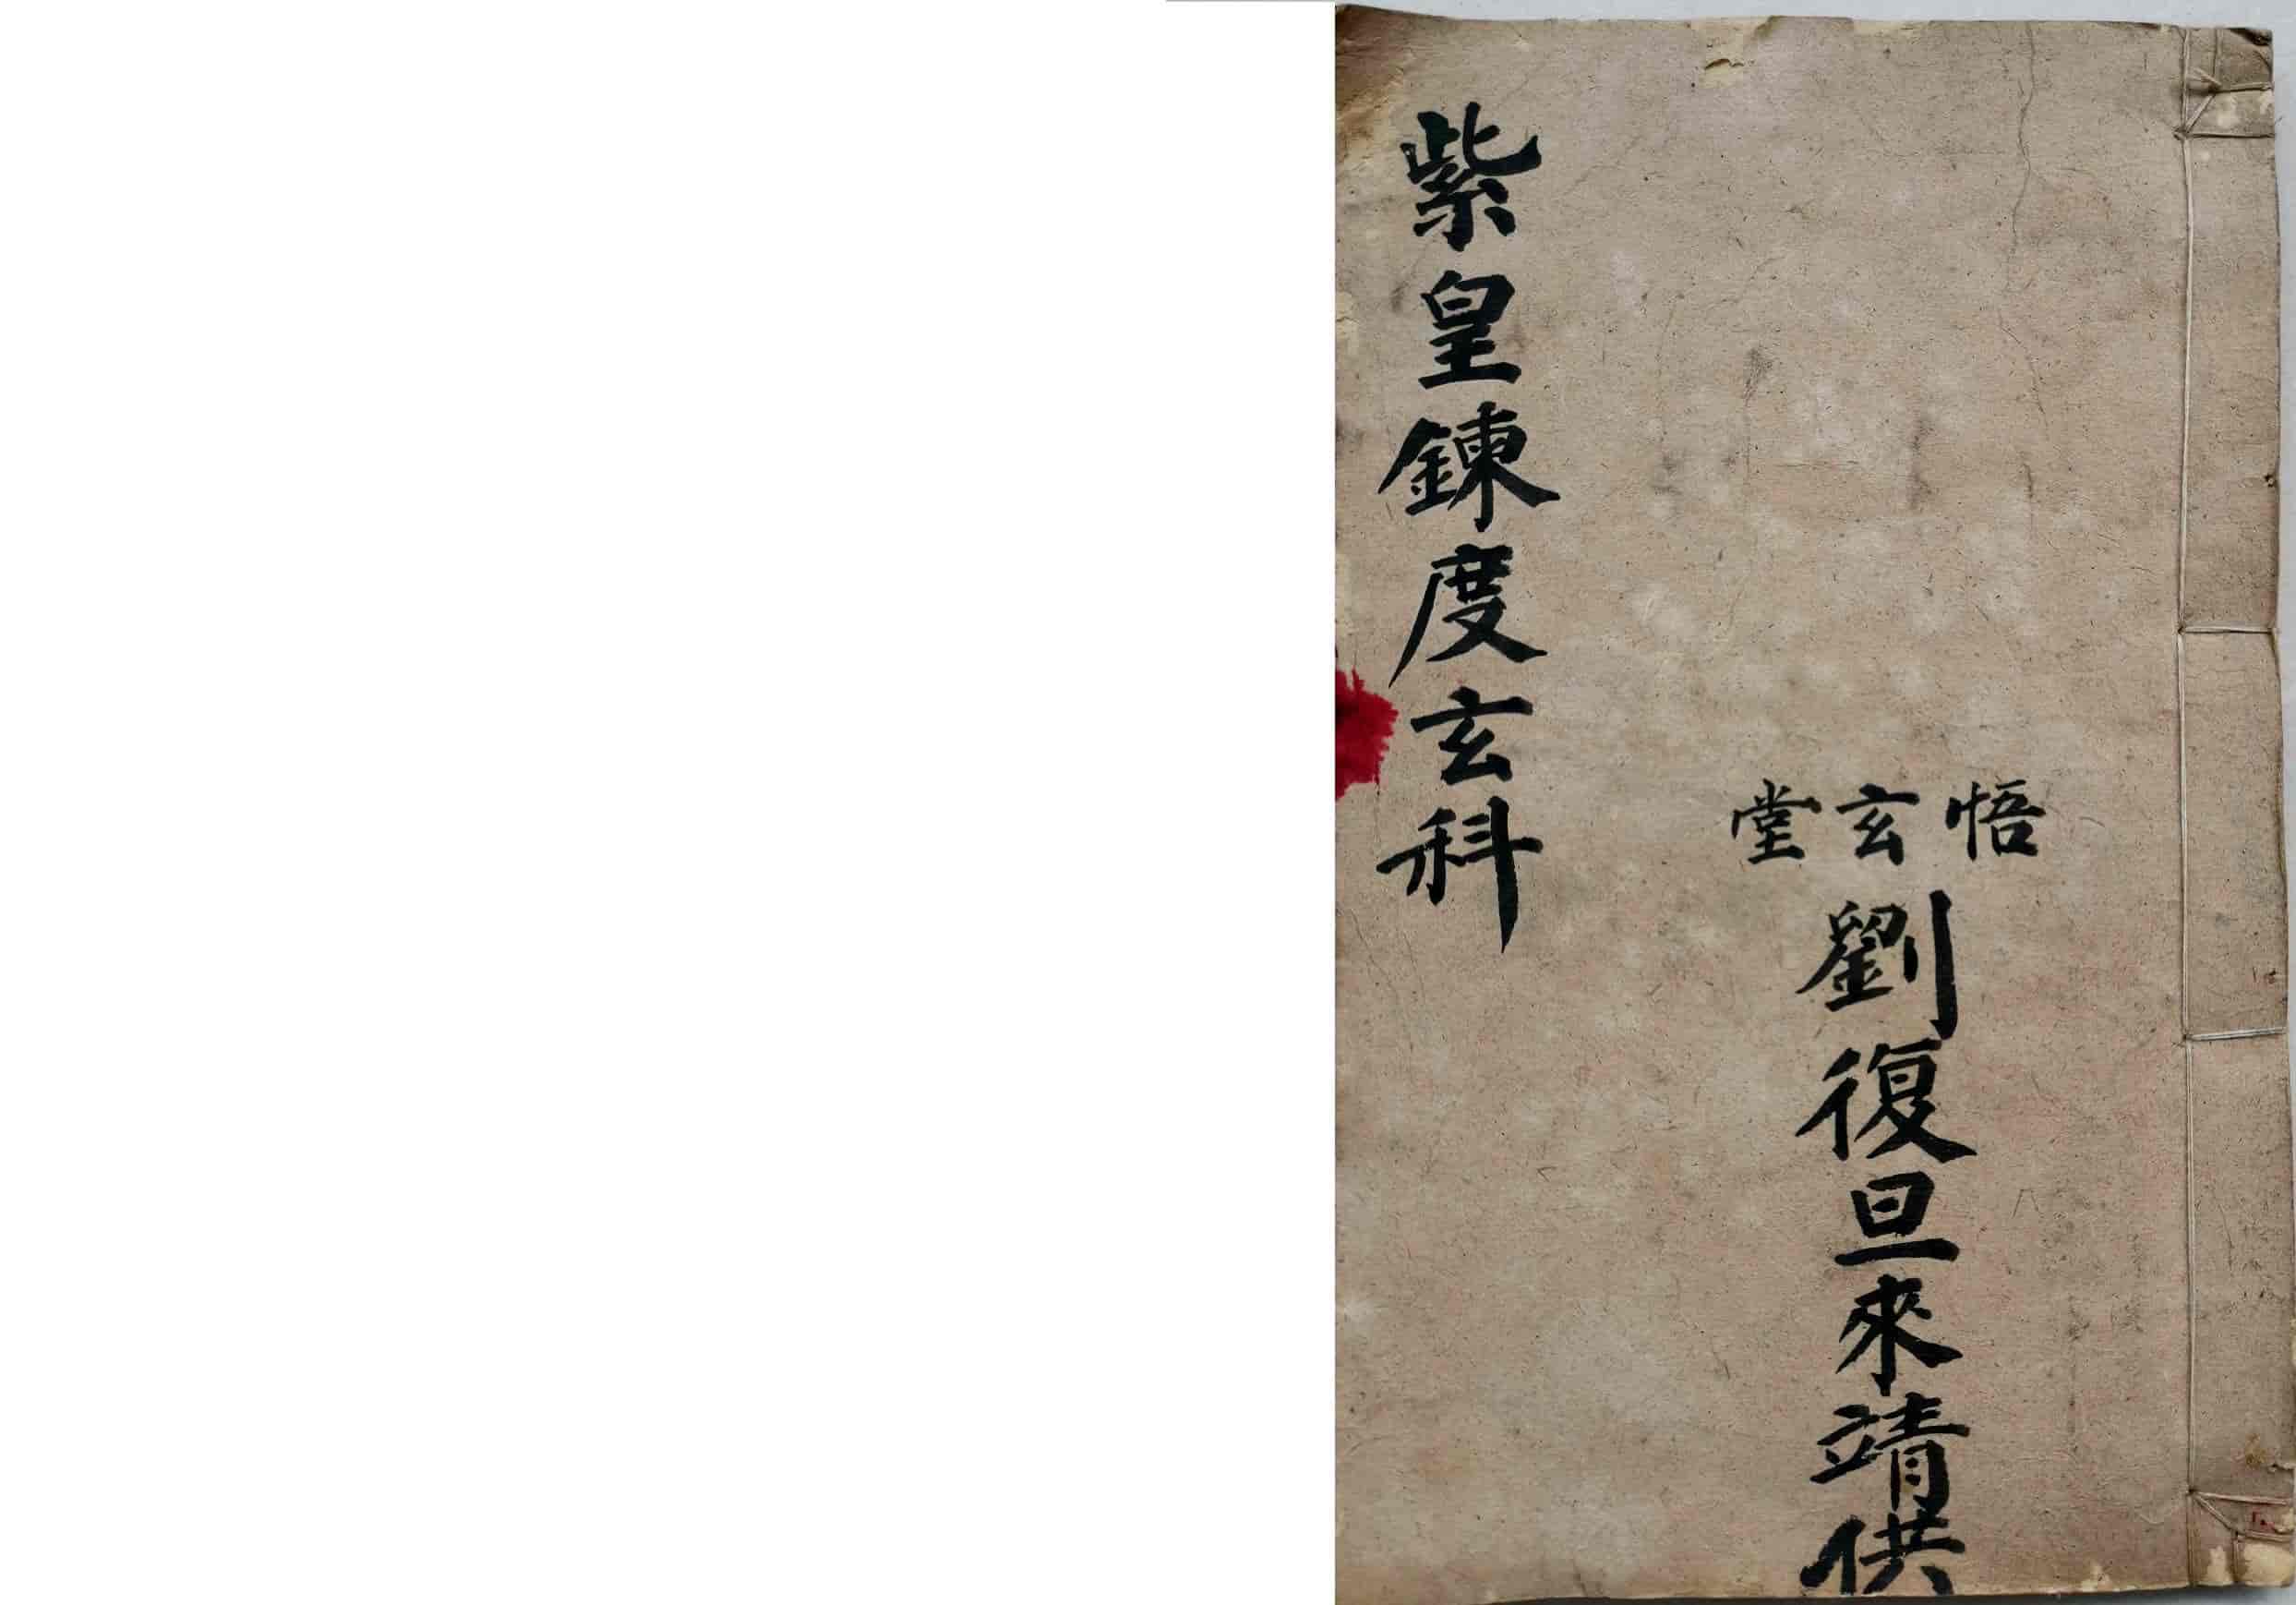 悟玄堂
劉復旦來靖供
紫皇鍊度玄科